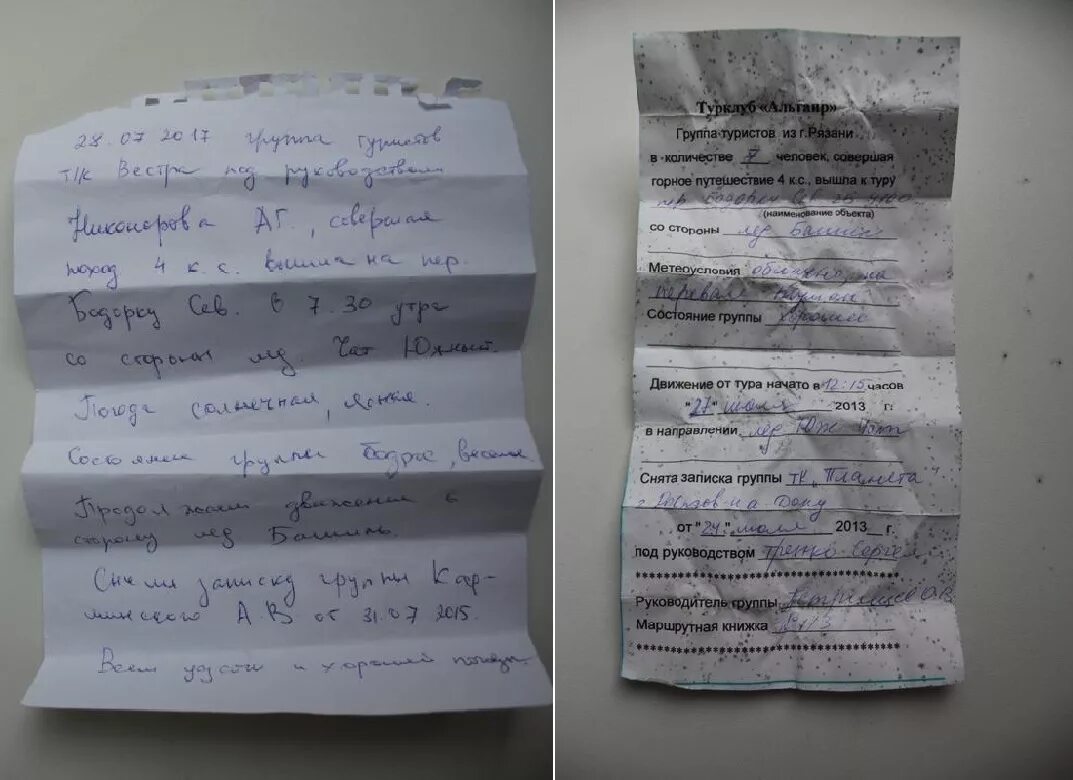 28.07 2017 группа туристов
т/к Вестра под руководством
Никонорова А.Г., совершая
поход 4 к.с. вышла на пер.
Бодорку Сев. в 7.30 утра
со стороны лед. Чат Южный.
Погода солнечная, ясная.
Состояние группы бодрое,
Продолжаем движение в
сторону лед Башиль.
Сняли записку группы Кар-
минского А.В. от 31.07 2015.
Всем удачи и хорошей погоды
Турклуб «Альтаир»
Группа туристов из г.Рязани
в количестве 7 человек, совершая
горное путешествие 4 к.с., вышла к туру
пер Бодорку Сев
(наименование объекта)
со стороны лед Башиль
Метеоусловия облачно, на
перевал
Состояние группы хорошее
Движение от тура начато в 12:15 часов
"27" июля 2013 г:
в направлении лед Юж Чат
Снята записка группы тк "Планета"
г Ростов-на Дону
от "24" июля 2013 г.
под руководством Сергея
************************************
Руководитель группы
Маршрутная книжка
************************************